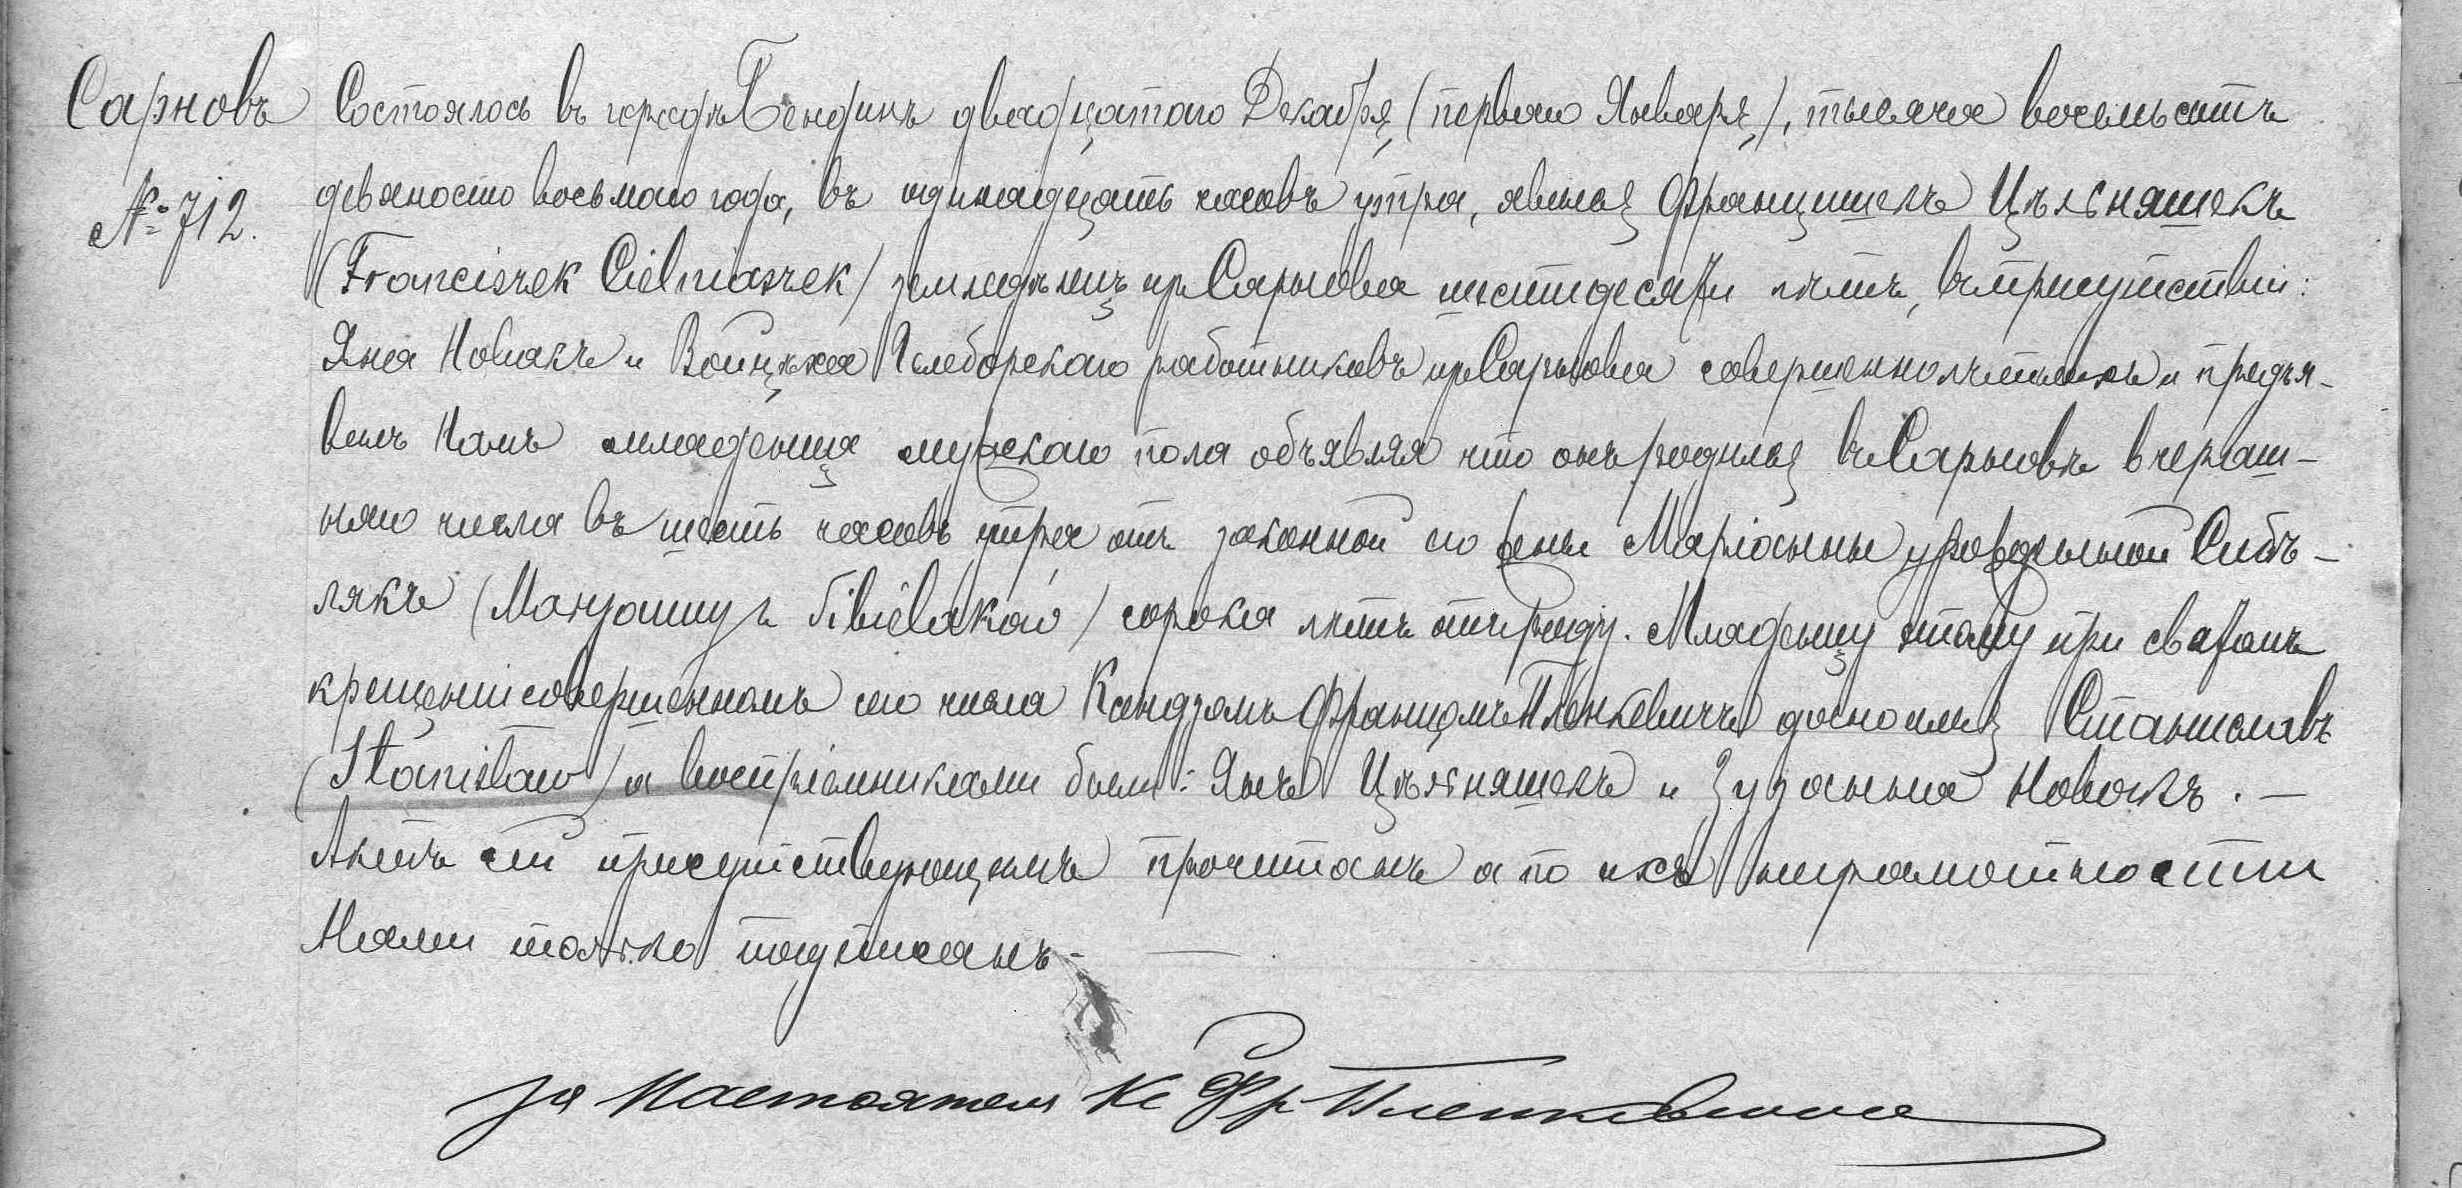 Сарновъ
№ 712.
Состоялось въ городѣ Бендинѣ двадцатаго Декабря (перваго Января), тысяча восемьсотъ
девяносто восьмаго года, въ одинадцать часовъ утра, явился Францишекъ Цѣльняшекъ
(Franciszek Cielniaszek) земледѣлецъ изъ Сарнова шестидесяти лѣтъ, въ присутствіи:
Яна Новакъ и Войцѣха работниковъ изъ Сарнова совершеннолѣтнихъ и предъя-
вилъ Намъ младенца мужскаго пола объявляя что онъ родился въ Сарновѣ вчераш-
няго числа въ шесть часовъ утра отъ законной его жены Маріанны урожденной Сибѣ-
лякъ (Maryanny z Sibielaków) сорока лѣтъ отъ роду. Младенцу этому при святомъ
крещеніи совершенномъ сего числа Ксендзомъ Францомъ Пленкевичъ дано имя Станиславъ
(Stanisław) а воспріемниками были: Янъ Цѣльняшекъ и Зузанна Новакъ. —
Актъ сей присутствующимъ прочитанъ а по ихъ неграмотности
Нами только подписанъ. —
за Настоятеля Кс Фр Пленкевичъ